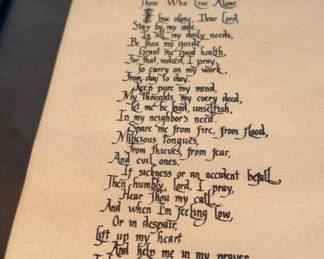 Those Who Live Alone
I live alone, Dear Lord
Stay by my side.
In all my daily needs,
Be Thou my guide.
Grant me good health,
For that, indeed, I pray,
To carry on my work
From day to day.
Keep pure my mind,
My thoughts, my every deed,
Let me be kind, unselfish,
In my neighbor's need.
Spare me from fire, from flood,
Malicious tongues,
From thieves, from fear,
And evil ones.
If sickness or an accident befall,
Then humbly, Lord, I pray,
Hear Thou my call.
And when I'm feeling low,
Or in despair,
Lift up my heart
And help me in my prayer.